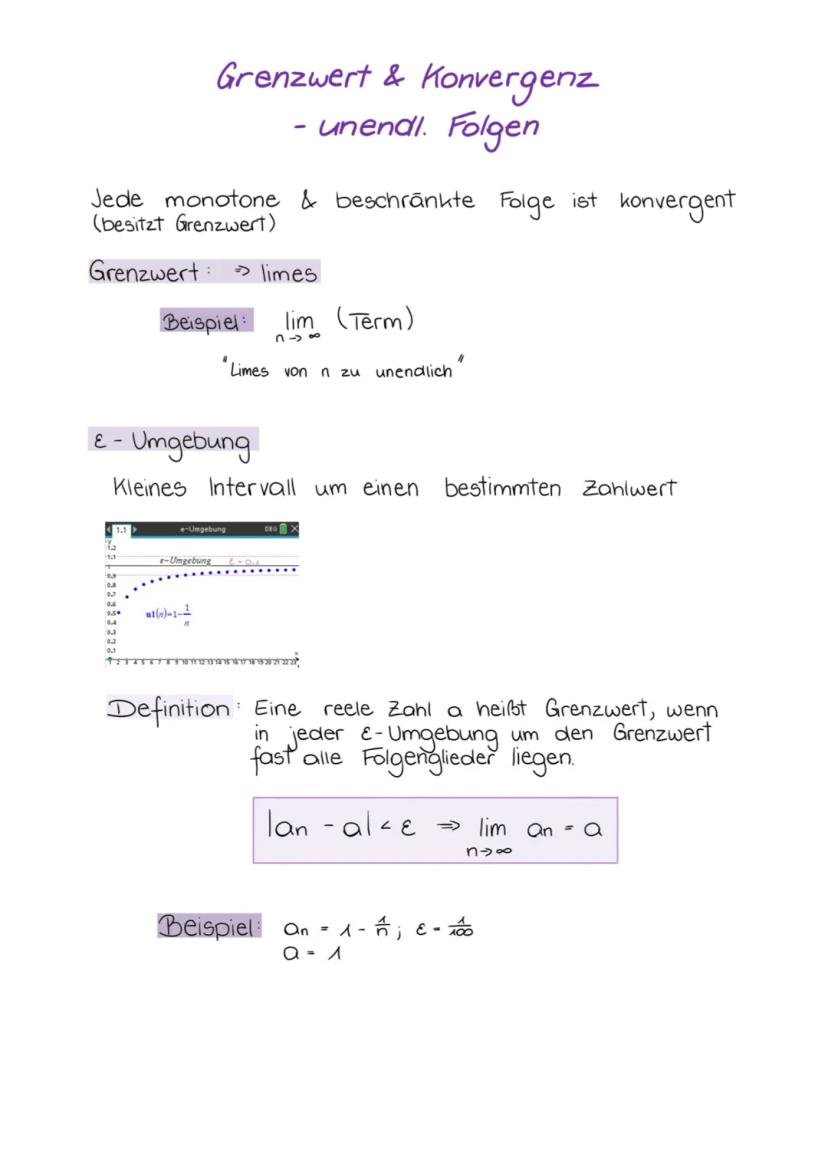 Grenzwert & Konvergenz
- unendl. Folgen
Jede monotone & beschränkte Folge ist konvergent
(besitzt Grenzwert)
Grenzwert: ⇒ limes
Beispiel: lim (Term)
n→∞
"Limes von n zu unendlich"
ε - Umgebung
Kleines Intervall um einen bestimmten Zahlwert
1.1 e-Umgebung DEG
y
1.2
1.1
ε-Umgebung ε = 0.1
1
0.9
0.8
0.7
0.6
0.5
u1(n)=1-1/n
0.4
0.3
0.2
0.1
x
1 2 3 4 5 6 7 8 9 10 11 12 13 14 15 16 17 18 19 20 21 22 23
Definition: Eine reele Zahl a heißt Grenzwert, wenn
in jeder ε-Umgebung um den Grenzwert
fast alle Folgenglieder liegen.
|an - a| < ε ⇒ lim an = a
n→∞
Beispiel: an = 1 - 1/n ; ε = 1/100
a = 1